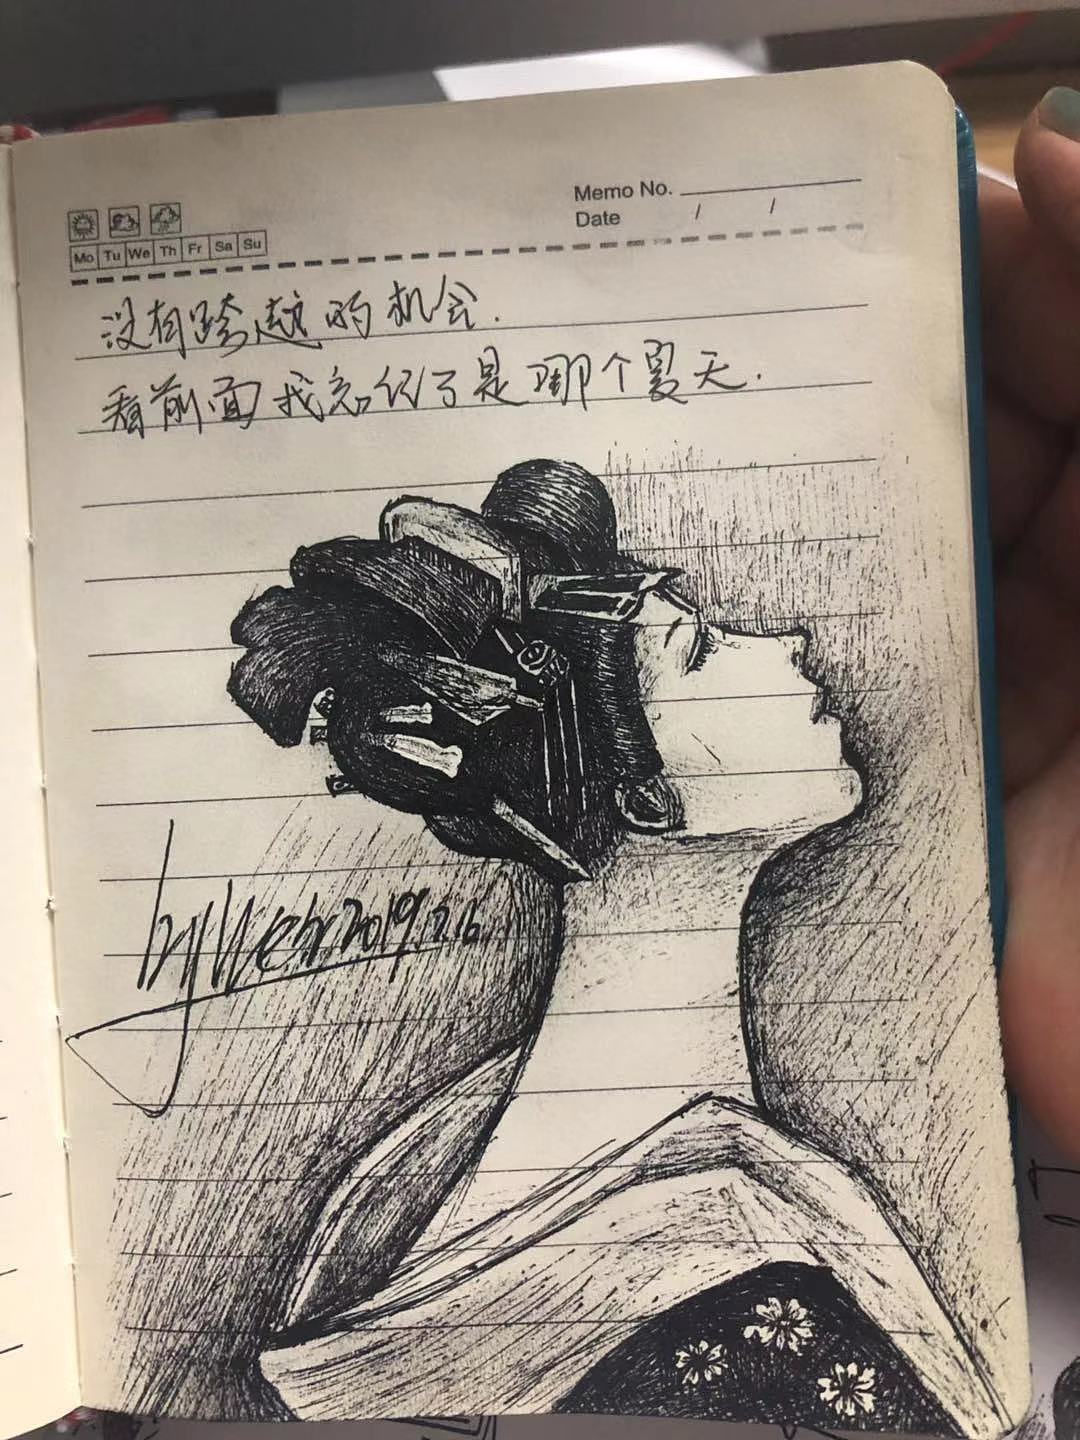 Memo No.
Date / /
Mo Tu We Th Fr Sa Su
没有跨越的机会.
看前面我忘记了是哪个夏天.
2019.12.16